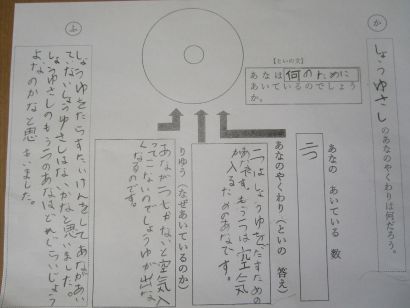 か
しょうゆさしのあなのやくわりは何だろう。
【といの文】
あなは何のために
あいているのでしょう
か。
あなの あいている 数
二つ
あなのやくわり(といの 答え)
一つはしょうゆをだすための
あなです。もう一つは空気
が入るためのあなです。
りゆう(なぜあいているのか)
あなが一つしかないと空気入
ってこないのでしょうゆが出な
くなるのです。
ふ
しょうゆをたらすたいけんをしてあながあい
てないしょうゆさしはないかなと思いました。
しょうゆさしのもう一つのあなはどれぐらい
よなのかなと思いました。